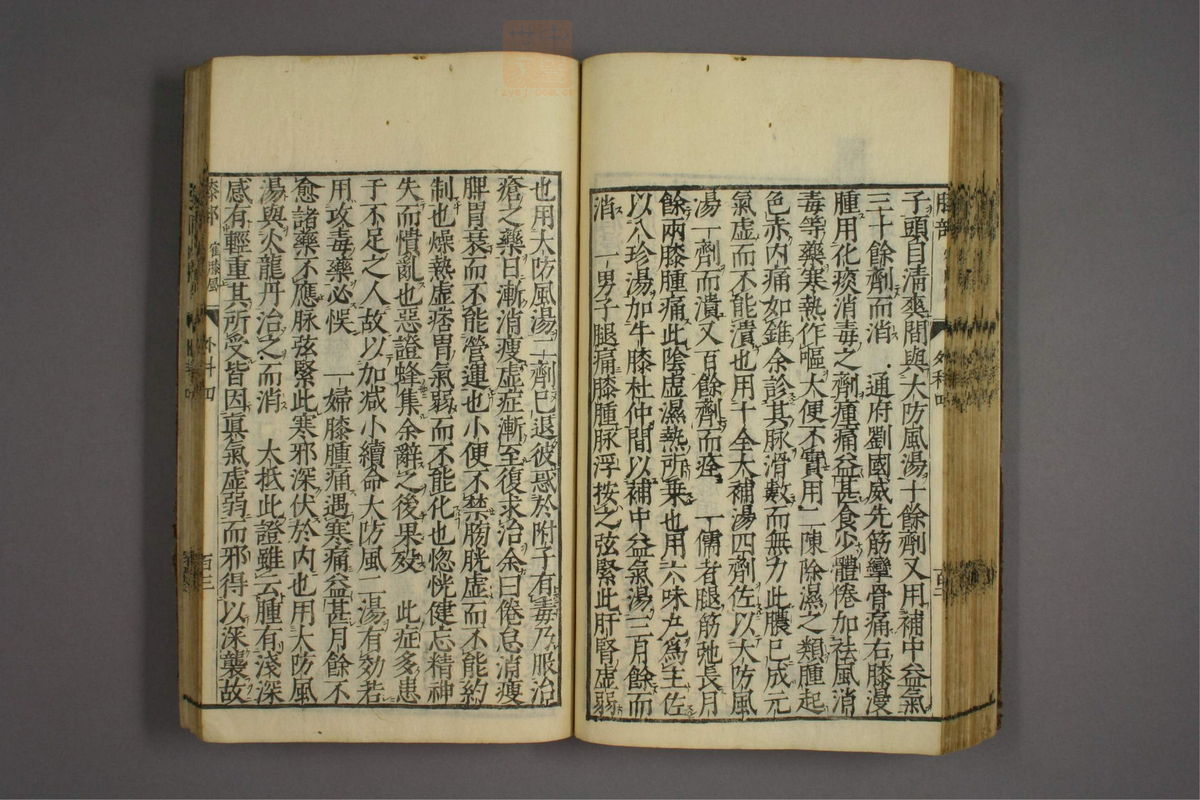 子頭目清爽間與大防風湯十餘劑又用補中益氣
三十餘劑而消　通府劉國威先筋攣骨痛右膝漫
腫用化痰消毒之劑腫痛益甚食少體倦加祛風消
毒等藥寒熱作嘔大便不實用二陳除濕之類腫起
色赤内痛如錐余診其脉滑數而無力此膿已成元
氣虚而不能潰也用十全大補湯四劑佐以大防風
湯一劑而潰又百餘劑而痊　一儒者腿筋弛長月
餘兩膝腫痛此陰虚濕熱所乗也用六味丸爲主佐
以八珍湯加牛膝杜仲間以補中益氣湯三月餘而
消　一男子腿痛膝腫脉浮按之弦緊此肝腎虚弱
也用大防風湯二劑已退彼惑於附子有毒乃服治
瘡之藥日漸消瘦虚症漸至復求治余曰倦怠消瘦
脾胃衰而不能營運也小便不禁膀胱虚而不能約
制也燥熱虚痞胃氣弱而不能化也惚恍健忘精神
失而憒亂也惡證蜂集余辭之後果殁　此症多患
于不足之人故以加减小續命大防風二湯有効若
用攻毒藥必悮　一婦膝腫痛遇寒痛益甚月餘不
愈諸藥不應脉弦緊此寒邪深伏於内也用大防風
湯與火龍丹治之而消　大抵此證雖云腫有淺深
感有輕重其所受皆因真氣虚弱而邪得以深襲故
膝部　外科四　百三